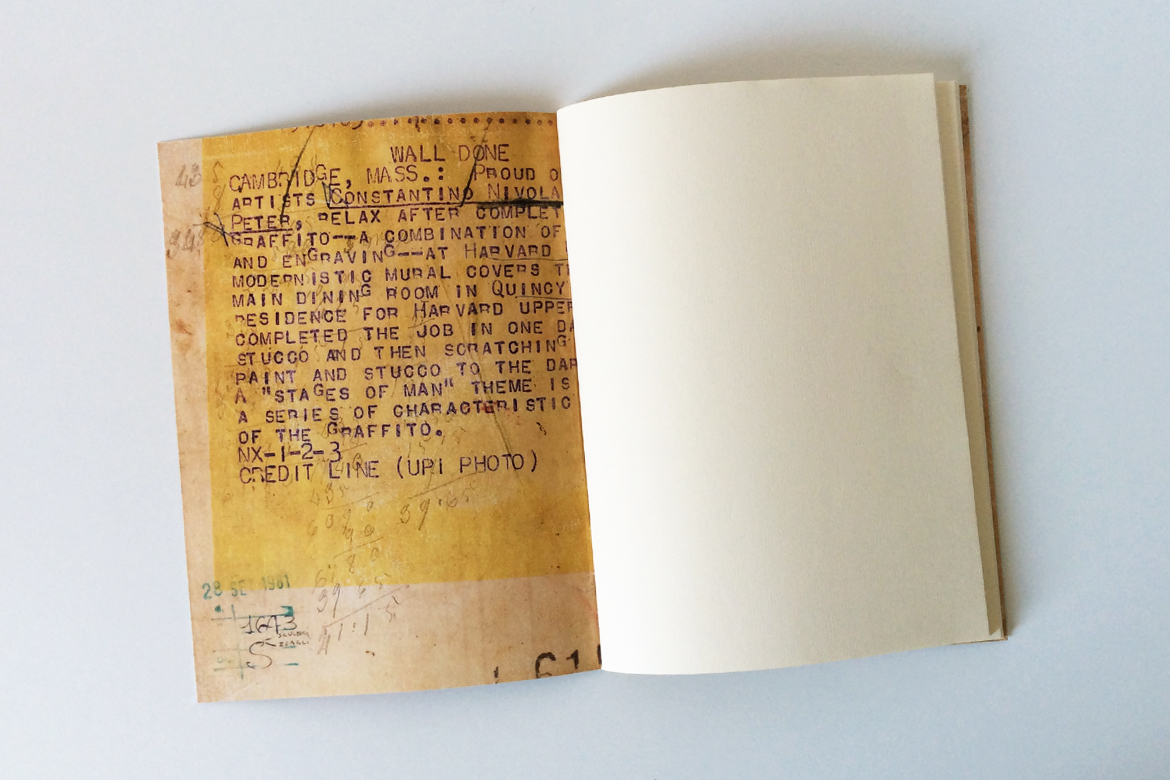 WALL DONE
CAMBRIDGE, MASS.: PROUD O
ARTISTS CONSTANTINO NIVOLA
PETER, RELAX AFTER COMPLET
GRAFFITO--A COMBINATION OF
AND ENGRAVING--AT HARVARD
MODERNISTIC MURAL COVERS T
MAIN DINING ROOM IN QUINCY
RESIDENCE FOR HARVARD UPPER
COMPLETED THE JOB IN ONE DA
STUCCO AND THEN SCRATCHING
PAINT AND STUCCO TO THE DAR
A "STAGES OF MAN" THEME IS
A SERIES OF CHARACTERISTIC
OF THE GRAFFITO.
NX-1-2-3
CREDIT LINE (UPI PHOTO)
39.65
28 SET 1961
1643
S